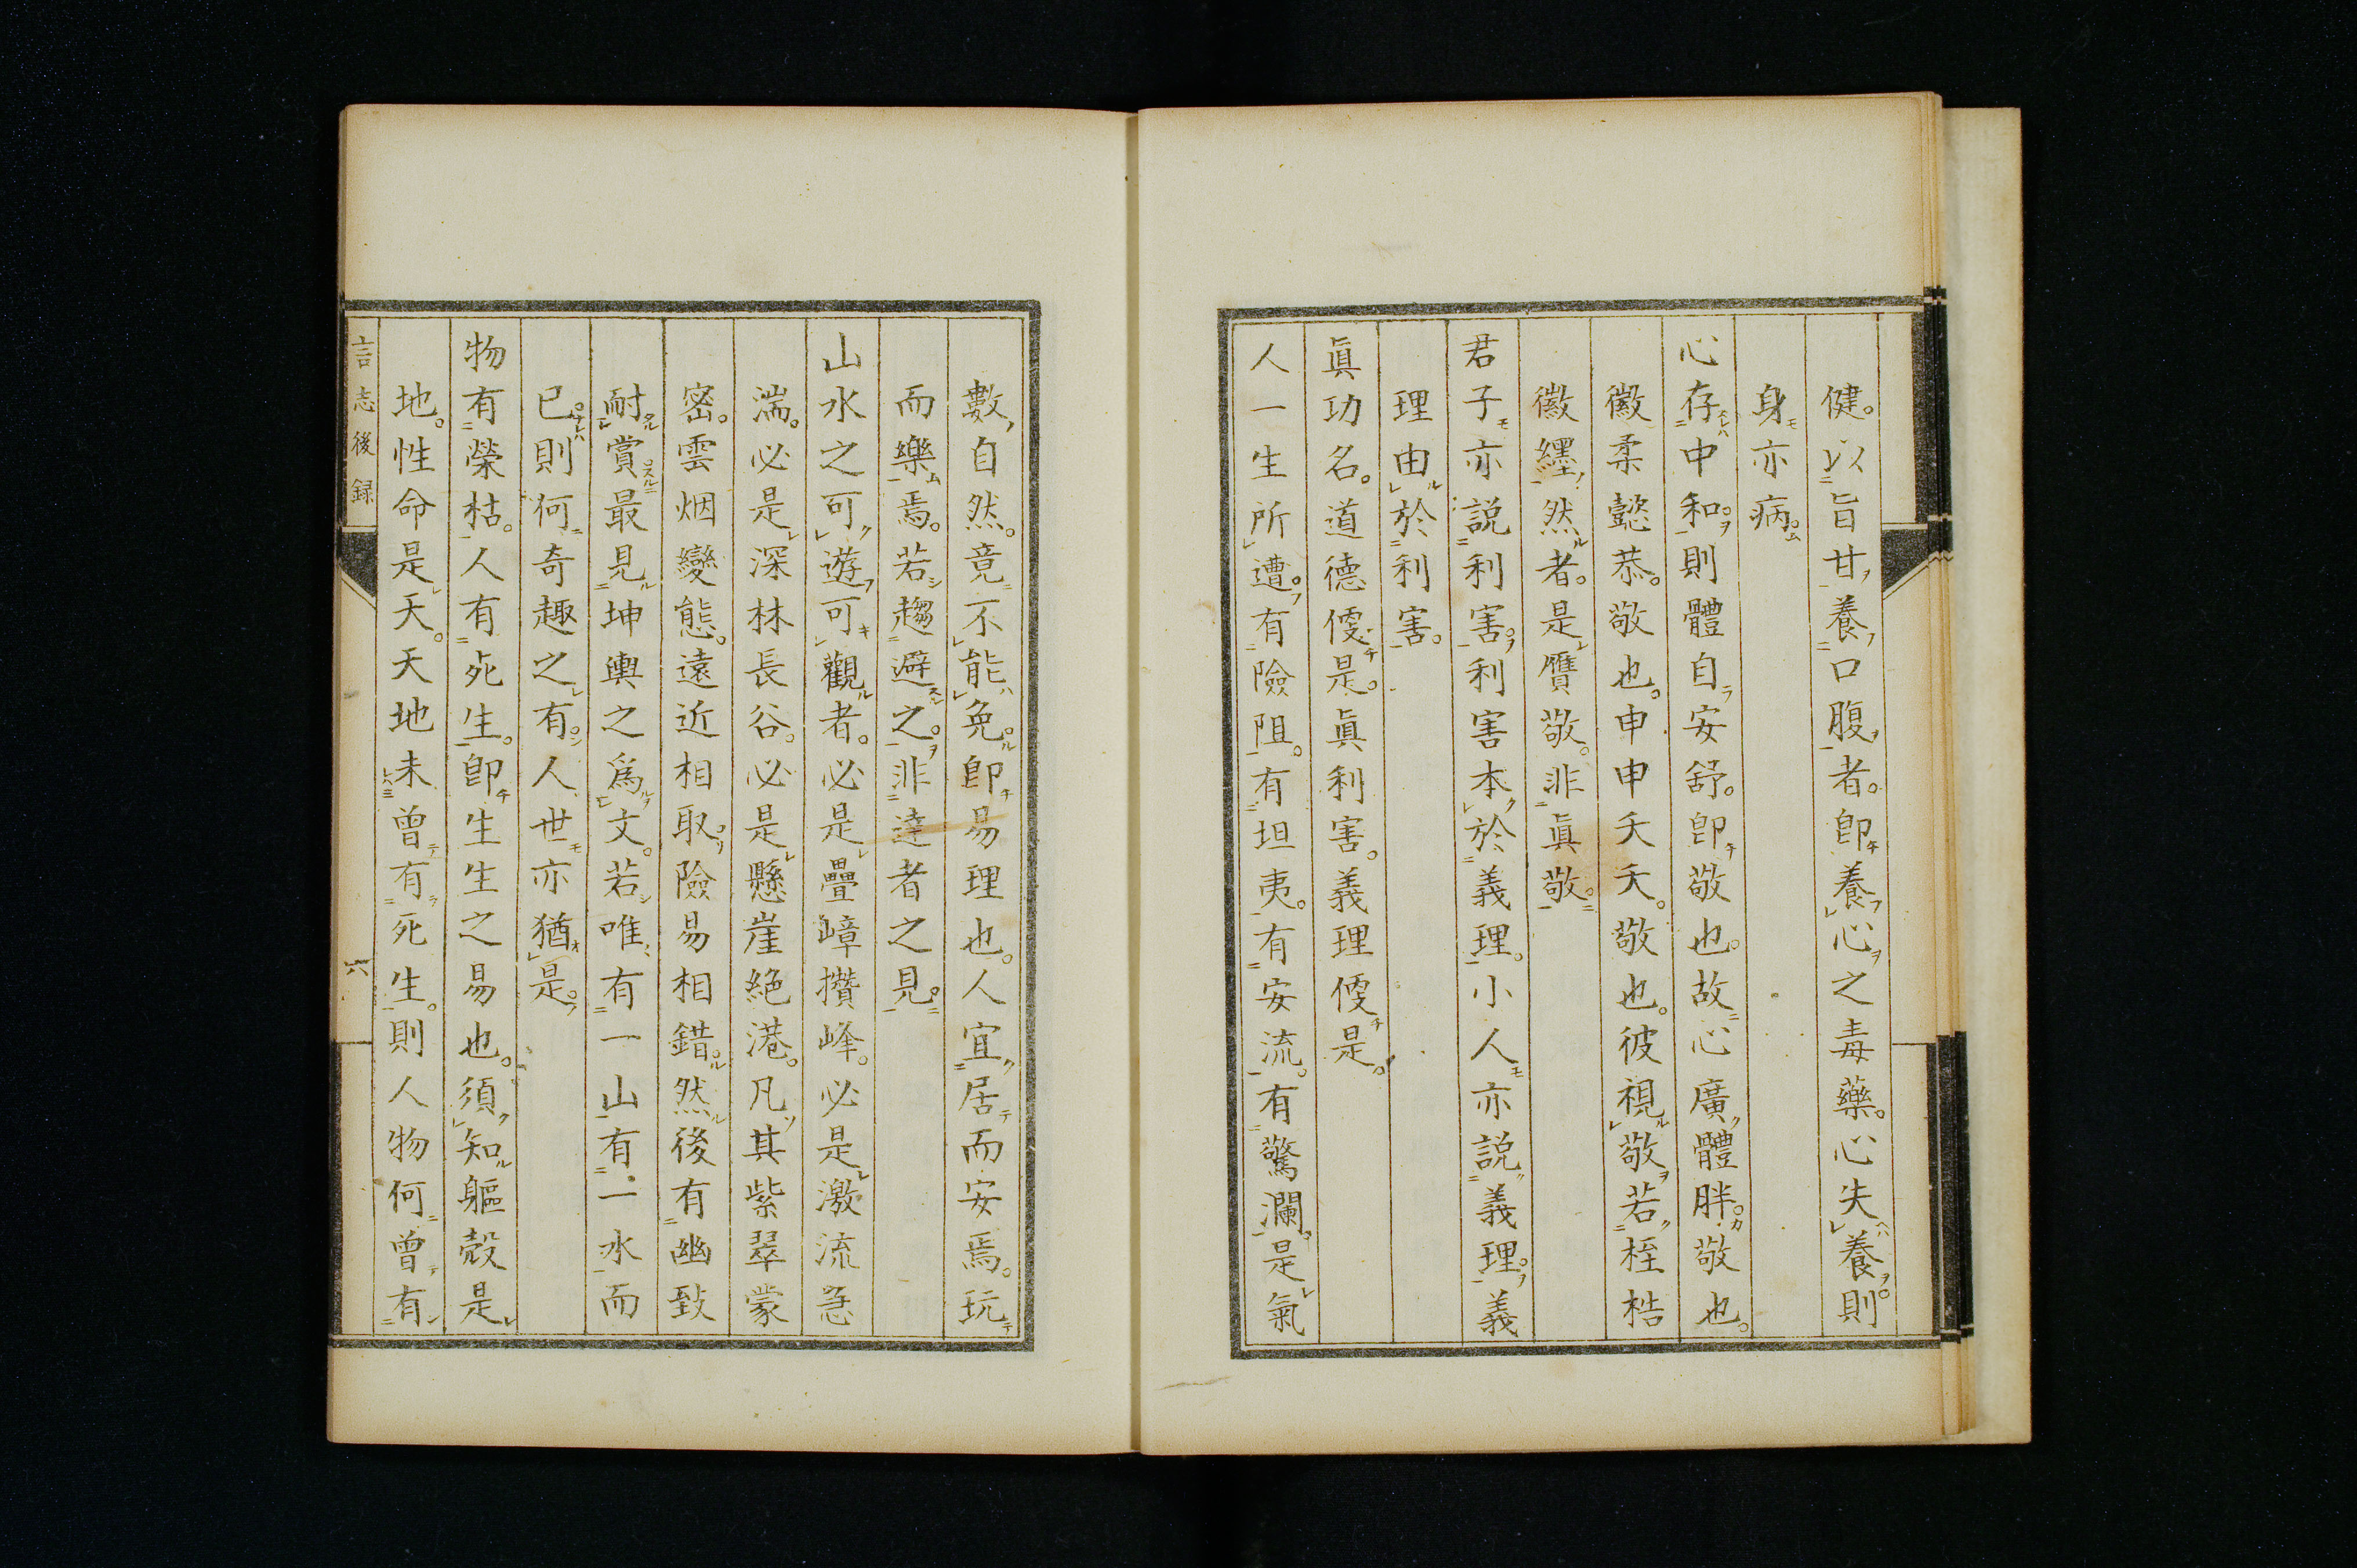 健。以旨甘養口腹者。卽養心之毒藥。心失養則
身亦病。
心存中和。則體自安舒。卽敬也。故心廣體胖。敬也。
徽柔懿恭。敬也。申申夭夭。敬也。彼視敬若桎梏
徽纆然者。是贋敬。非眞敬。
君子亦説利害。利害本於義理。小人亦説義理。義
理由於利害。
眞功名。道德便是。眞利害。義理便是。
人一生所遭。有險阻。有坦夷。有安流。有驚瀾。是氣
數自然。竟不能免。卽易理也。人宜居而安焉。玩
而樂焉。若趨避之。非達者之見。
山水之可遊可觀者。必是疊嶂攅峰。必是激流急
湍。必是深林長谷。必是懸崖絶港。凡其紫翠蒙
密。雲烟變態。遠近相取。險易相錯。然後有幽致
耐賞。最見坤輿之爲文。若唯有一山有一水而
已。則何奇趣之有。人世亦猶是。
物有榮枯。人有死生。卽生生之易也。須知軀殼是
地。性命是天。天地未曾有死生。則人物何曾有
言志後録
六